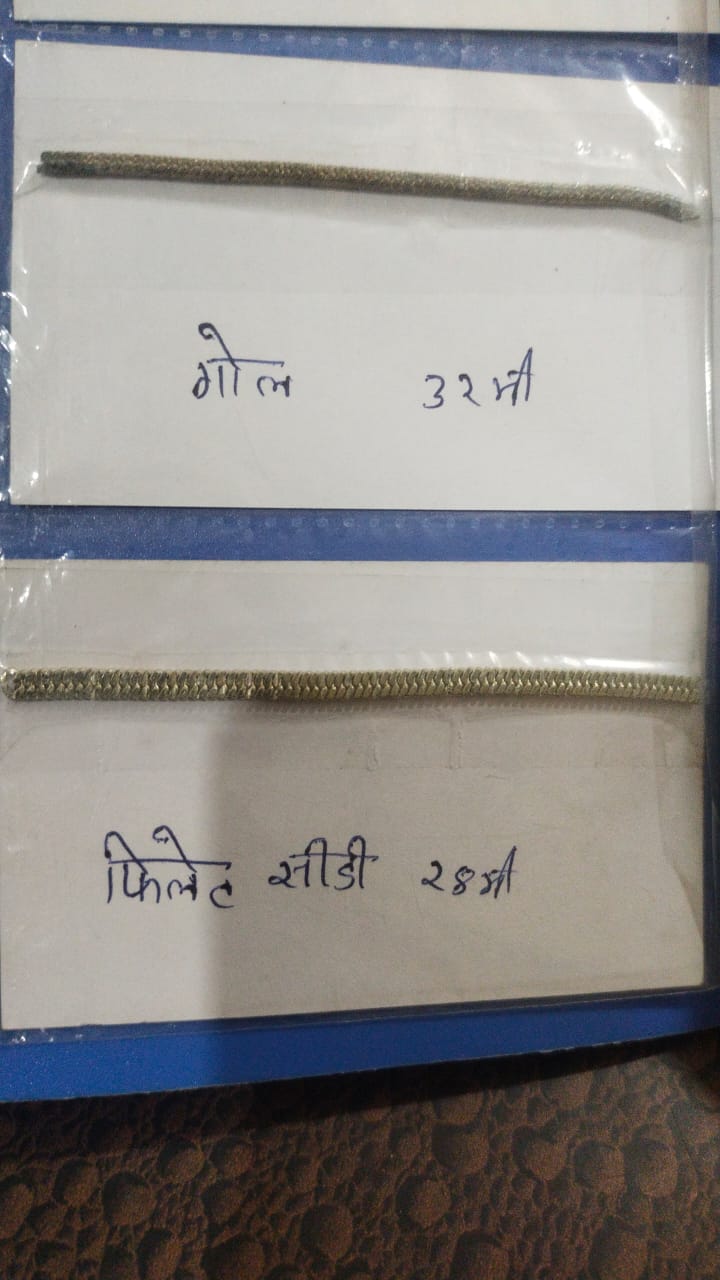 गोल ३२मी
फिलेट सीडी २४मी